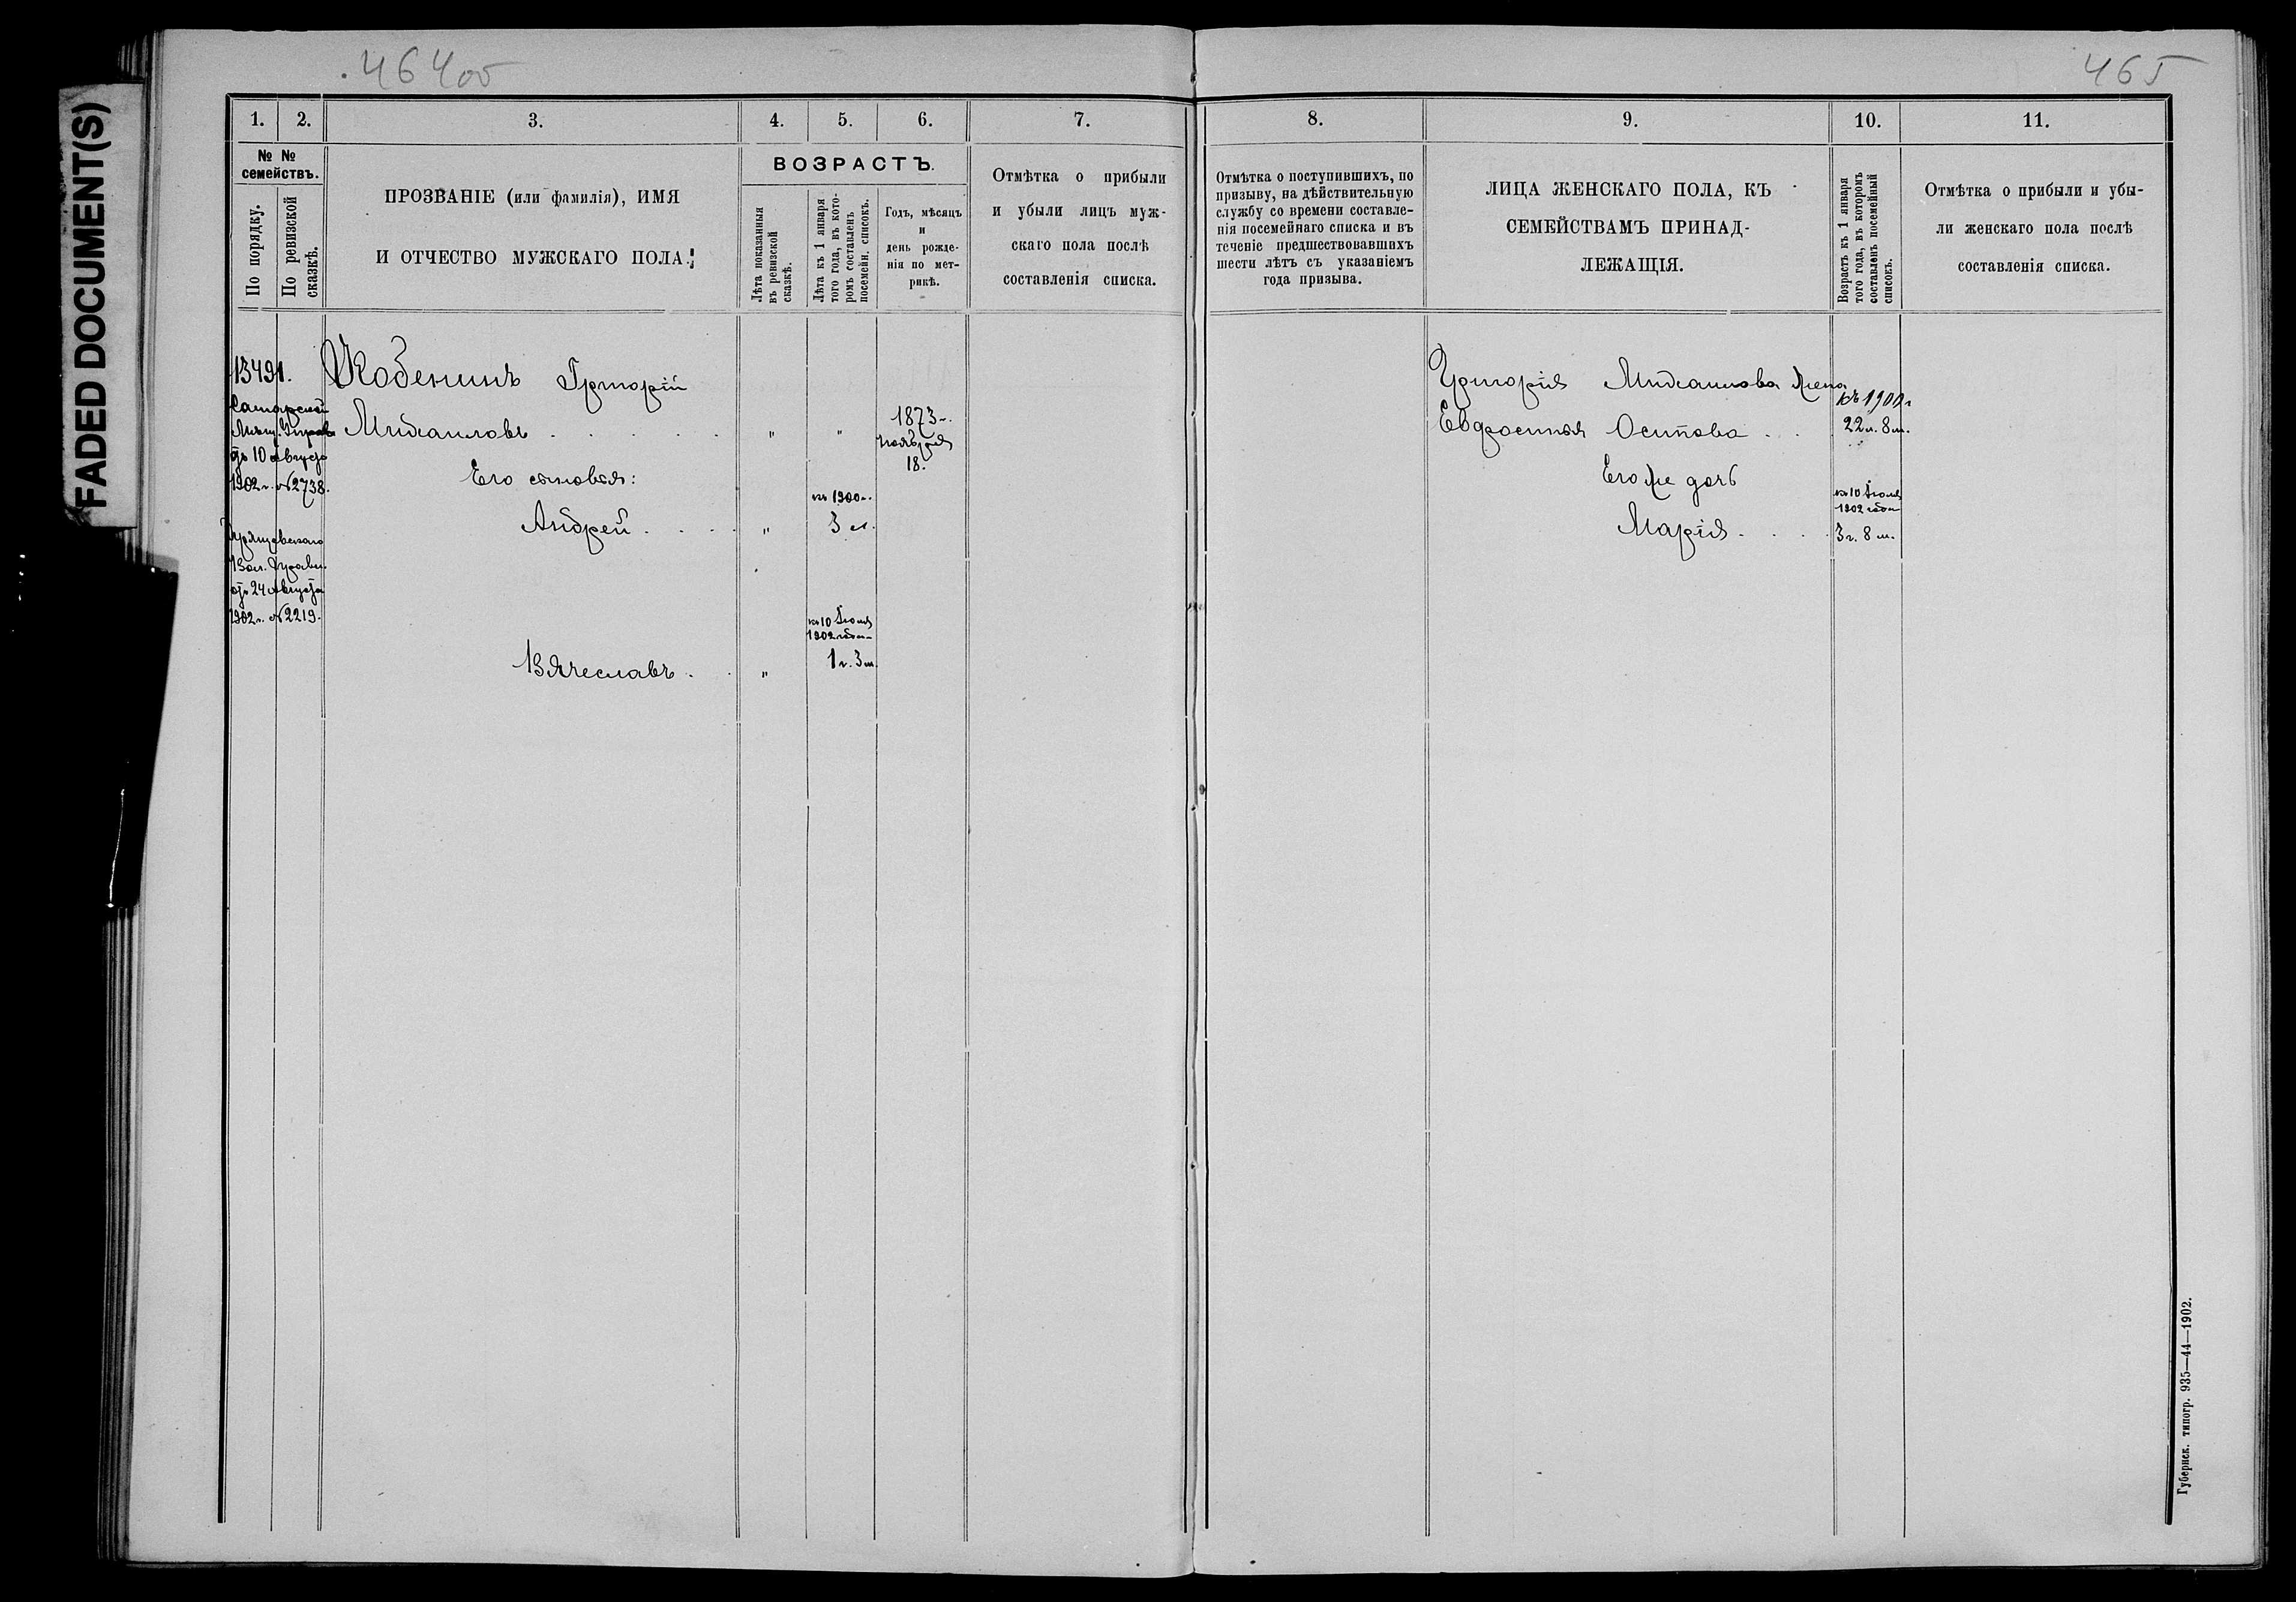 FADED DOCUMENT(S)
464об
465
1.
2.
3.
4.
5.
6.
7.
8.
9.
10.
11.
№ №
семействъ.
По порядку.
По ревизской
сказкѣ.
ПРОЗВАНІЕ (или фамилія), ИМЯ
И ОТЧЕСТВО МУЖСКАГО ПОЛА.
ВОЗРАСТЪ.
Лѣта показанныя
въ ревизской
сказкѣ.
Лѣта къ 1 января
того года, въ кото-
ромъ составленъ
посемейн. списокъ.
Годъ, мѣсяцъ
и
день рожде-
нія по мет-
рикѣ.
Отмѣтка о прибыли
и убыли лицъ муж-
скаго пола послѣ
составленія списка.
Отмѣтка о поступившихъ, по
призыву, на дѣйствительную
службу со времени составле-
нія посемейнаго списка и въ
теченіе предшествовавшихъ
шести лѣтъ съ указаніемъ
года призыва.
ЛИЦА ЖЕНСКАГО ПОЛА, КЪ
СЕМЕЙСТВАМЪ ПРИНАД-
ЛЕЖАЩІЯ.
Возрастъ къ 1 января
того года, въ которомъ
составленъ посемейный
списокъ.
Отмѣтка о прибыли и убы-
ли женскаго пола послѣ
составленія списка.
13491.
Самарской
Мѣщ. Управы
отъ 10 августа
1902 г. №2738.
Вол. Правл.
отъ 24 августа
1902 г. №2219.
Кобенинъ Григорій
Михаиловъ . . . . . " "
1873 г.
ноября
18.
Его сыновья:
къ 1900 г.
Андрей . . . . " 3 л.
къ 10 Іюля
1902 года
Вячеславъ . . " 1 г. 3 м.
Григорія Михаилова жена
къ 1900 г
Евфросинья Осипова . . . 22 л. 8 м.
Его же дочь
къ 10 Іюля
1902 года
Марія . . . . 3 г. 8 м.
Губернск. типогр. 935—44—1902.